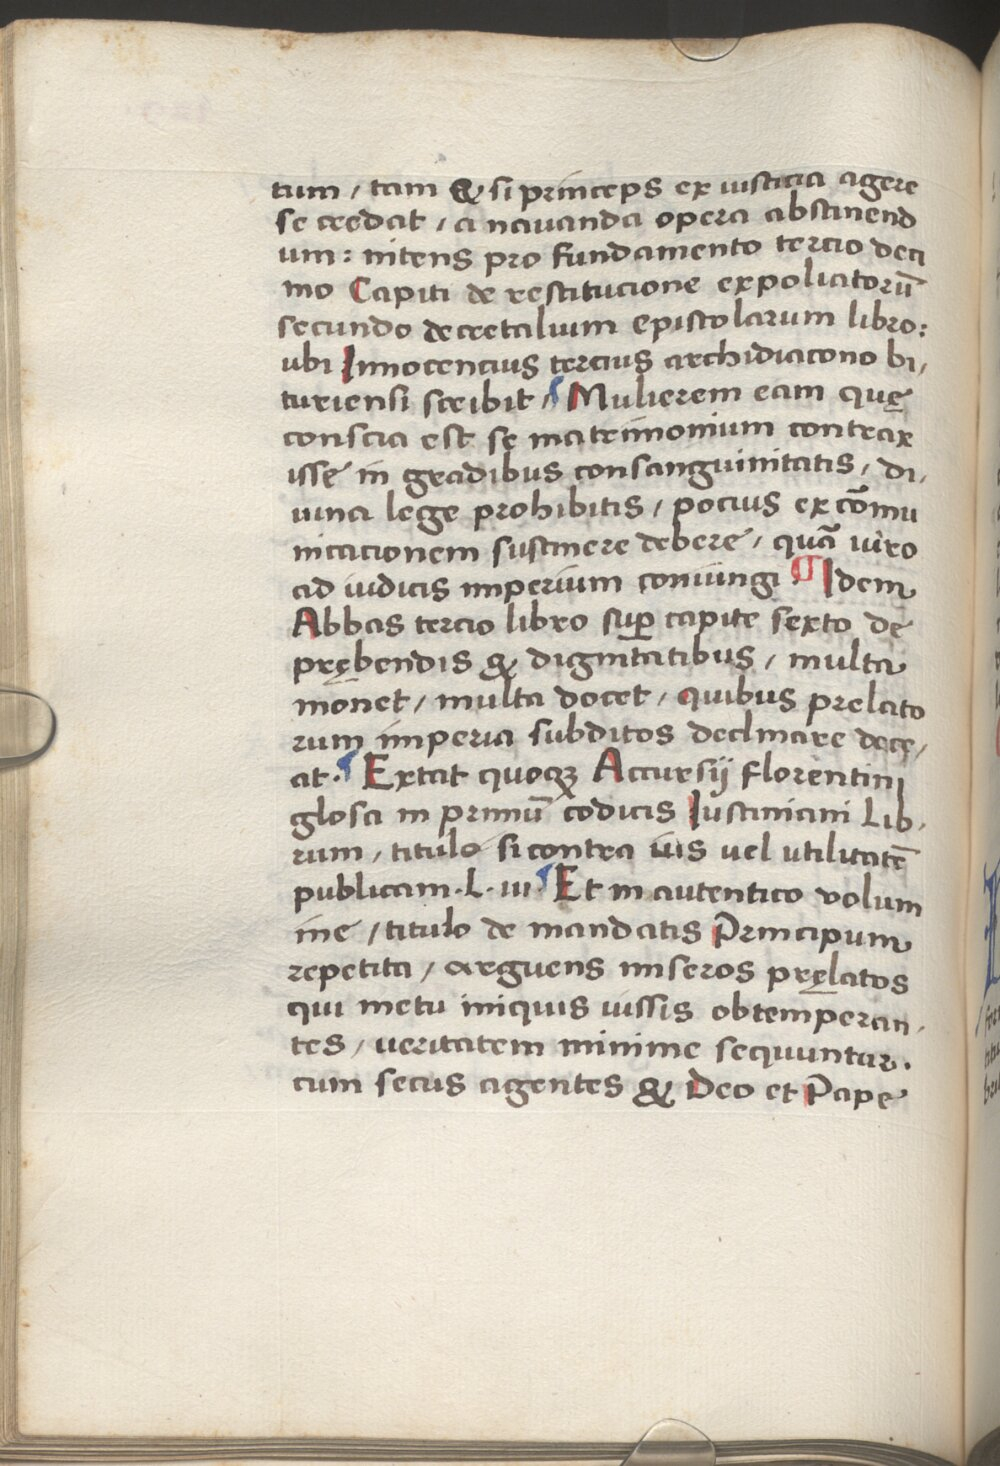 tum / tam & si princeps ex iusticia agere
se credat / a nauanda opera abstinend
um : nitens pro fundamento tercio deci
mo Capiti de restitucione expoliatorū
secundo decretalium epistolarum libro :
ubi Innocencius tercius archidiacono bi,
turiensi scribit / ¶ Mulierem eam quę
conscia est se matrimonium contrax
isse in gradibus consanguinitatis / di,
uina lege prohibitis / pocius excōmu
nicacionem sustinere debere / quā uiro
ad iudicis imperium coniungi . ¶ Idem
Abbas tercio libro sup̱ capite sexto de
prębendis & dignitatibus / multa
monet / multa docet / quibus prelato
rum imperia subditos declinare doce,
at . ¶ Extat quoqꝫ Accursij florentini
glosa in primū codicis Iustiniani Lib,
rum / titulo si contra iùs uel utilitatē
publicam . L . iii ¶ Et in autentico volum
ine / titulo de mandatis Principum
repetita / arguens miseros pręlatos
qui metu iniquis iussis obtemperan,
tes / ueritatem minime sequuntur .
cum secus agentes & Deo et Pape